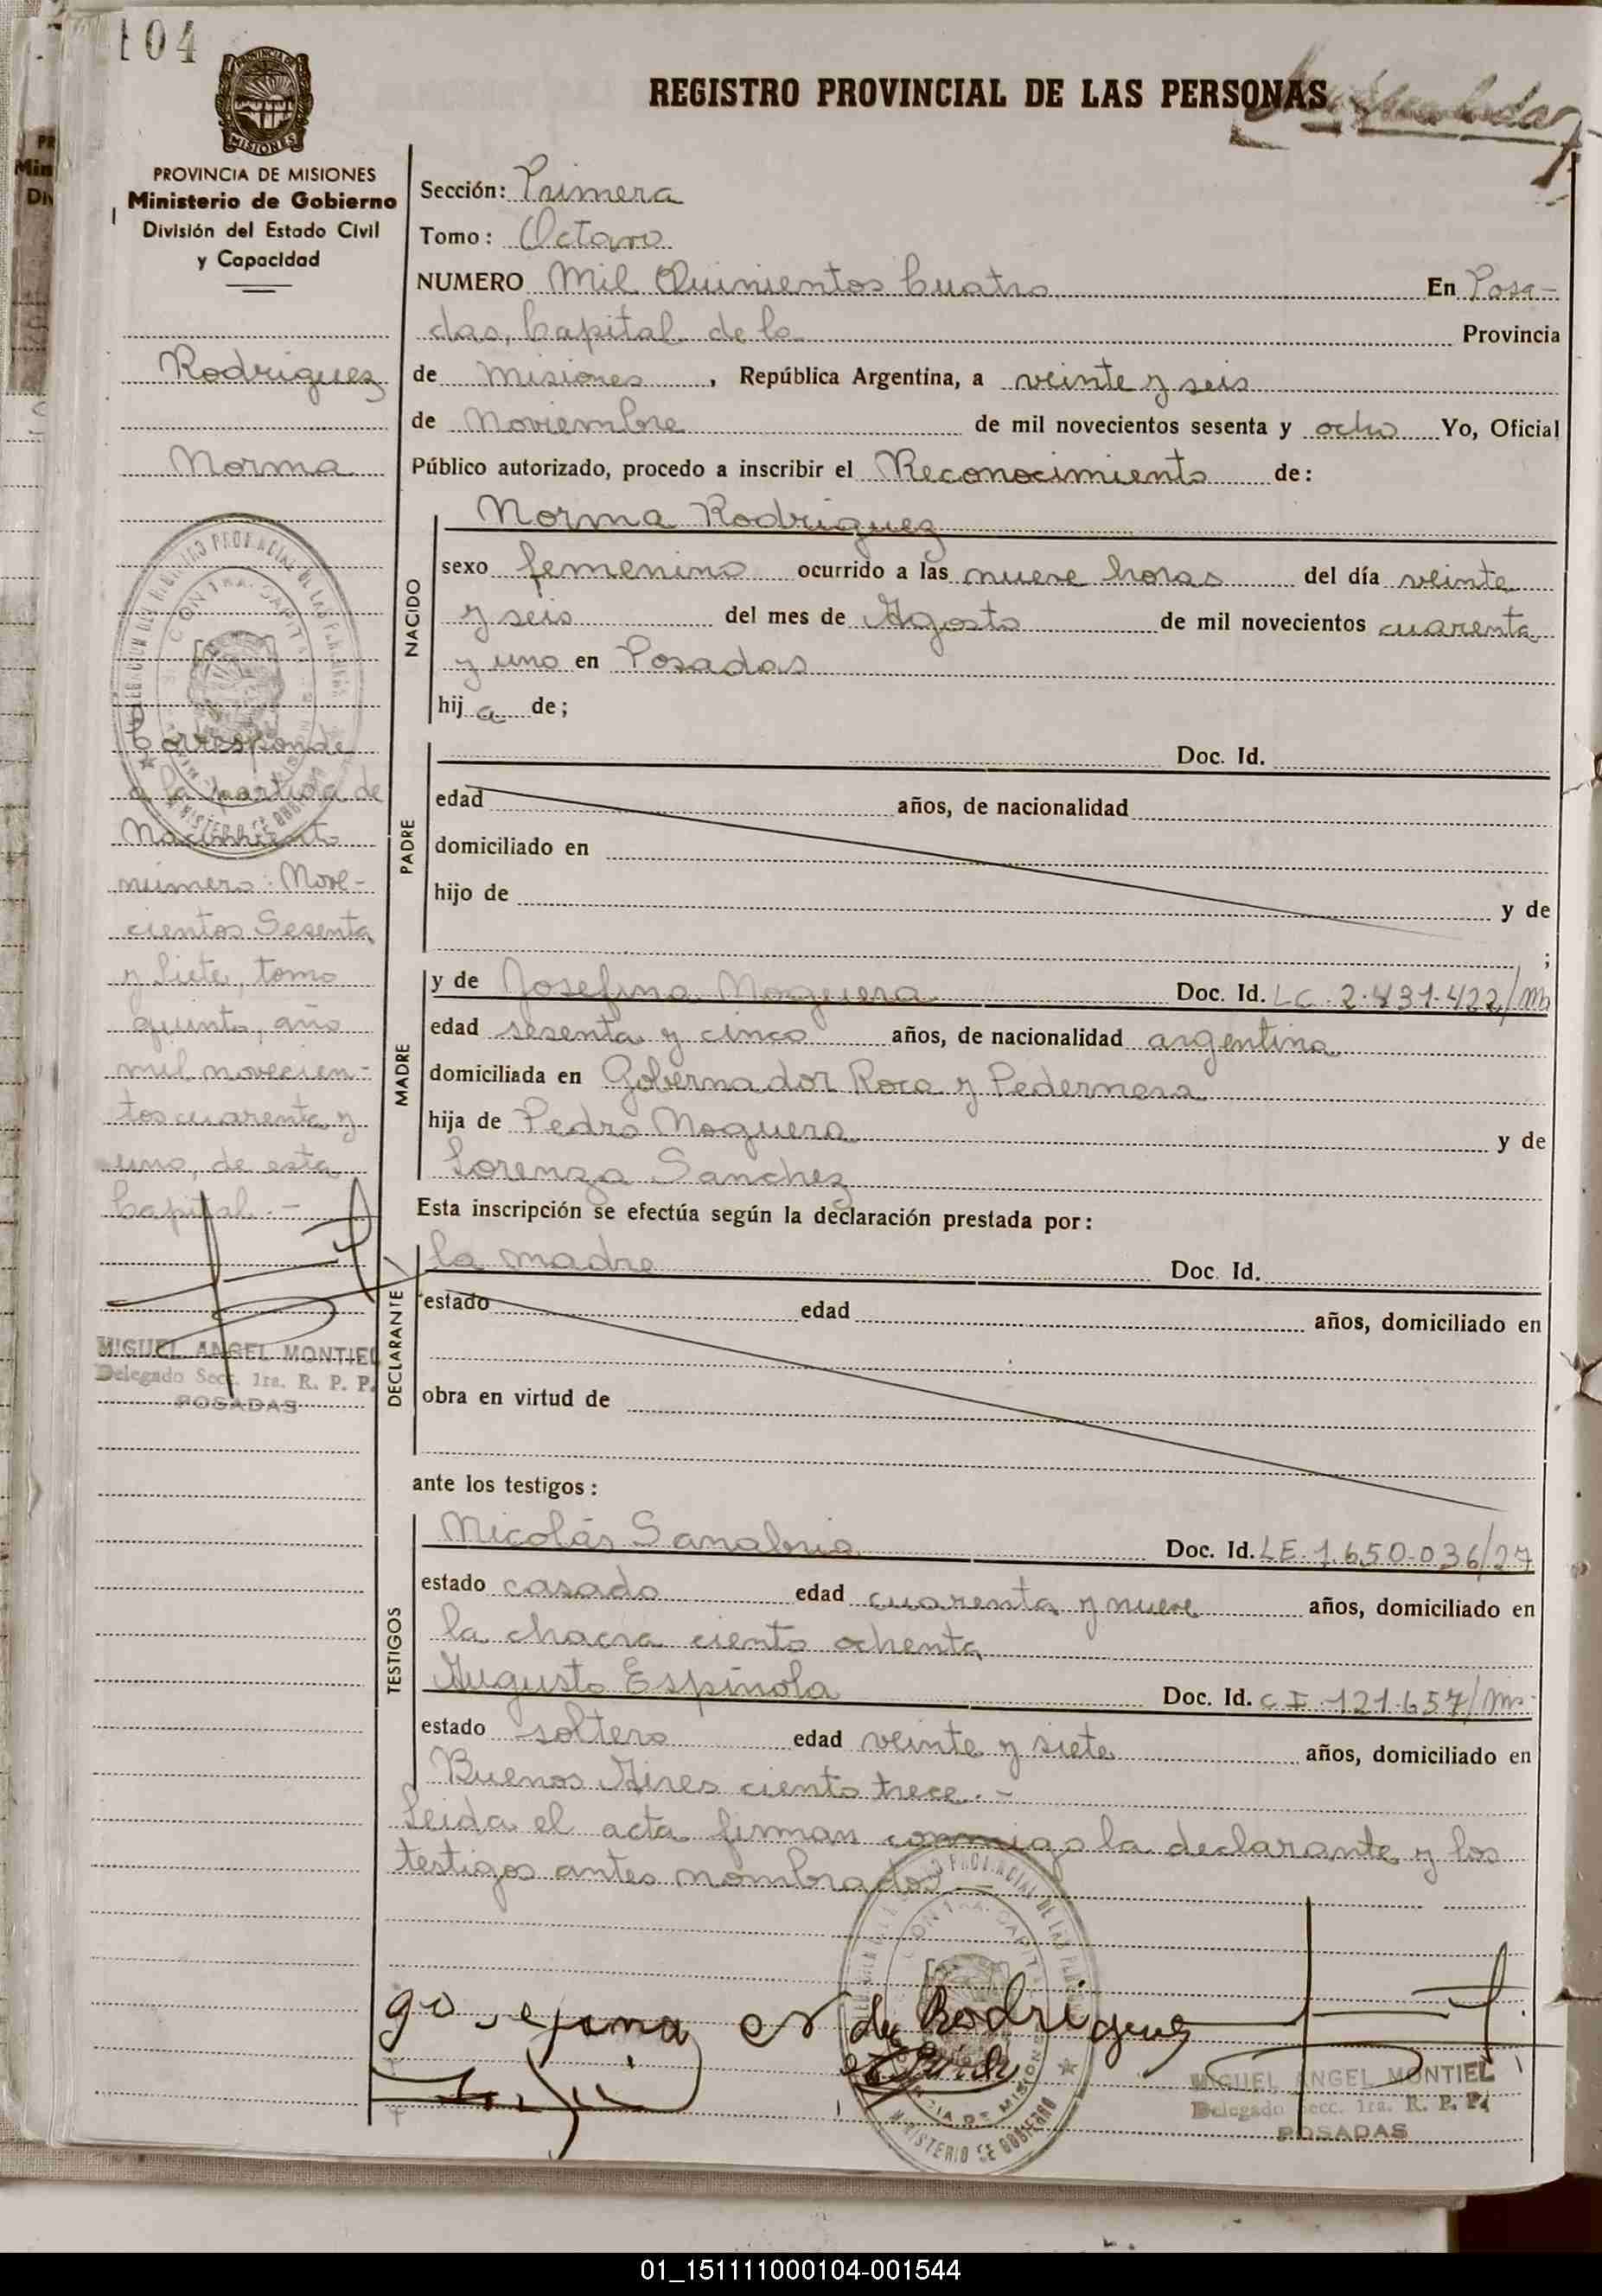 104
REGISTRO PROVINCIAL DE LAS PERSONAS
PROVINCIA DE MISIONES
Ministerio de Gobierno
División del Estado Civil
y Capacidad
Rodriguez
Norma
Corresponde
a la partida de
Nacimiento
número: Nove-
cientos Sesenta
y Siete, tomo
quinto, año
mil novecien-
tos cuarenta y
uno, de esta
Capital.-
MIGUEL ANGEL MONTIEL
Delegado Secc. 1ra. R. P. P.
POSADAS
Sección: Primera
Tomo: Octavo
NUMERO Mil Quinientos Cuatro En Posa-
das, Capital de la Provincia
de Misiones, República Argentina, a veinte y seis
de Noviembre de mil novecientos sesenta y ocho Yo, Oficial
Público autorizado, procedo a inscribir el Reconocimiento de:
NACIDO
Norma Rodriguez
sexo femenino ocurrido a las nueve horas del día veinte
y seis del mes de Agosto de mil novecientos cuarenta
y uno en Posadas
hij a de;
PADRE
Doc. Id.
edad años, de nacionalidad
domiciliado en
hijo de y de
;
MADRE
y de Josefina Noguera Doc. Id. LC. 2.431.422/M
edad sesenta y cinco años, de nacionalidad argentina
domiciliada en Gobernador Roca y Pedernera
hija de Pedro Noguera y de
Lorenza Sanchez
Esta inscripción se efectúa según la declaración prestada por:
DECLARANTE
la madre Doc. Id.
estado edad años, domiciliado en
obra en virtud de
ante los testigos:
TESTIGOS
Nicolás Sanabria Doc. Id. LE. 1.650.036/27
estado casado edad cuarenta y nueve años, domiciliado en
la chacra ciento ochenta
Augusto Espínola Doc. Id. C I. 121.657/Ms.
estado soltero edad veinte y siete años, domiciliado en
Buenos Aires ciento trece.-
Leida el acta firman conmigo la declarante y los
testigos antes nombrados.
N de Rodriguez
MIGUEL ANGEL MONTIEL
Delegado Secc. 1ra. R. P. P.
POSADAS
01_151111000104-001544